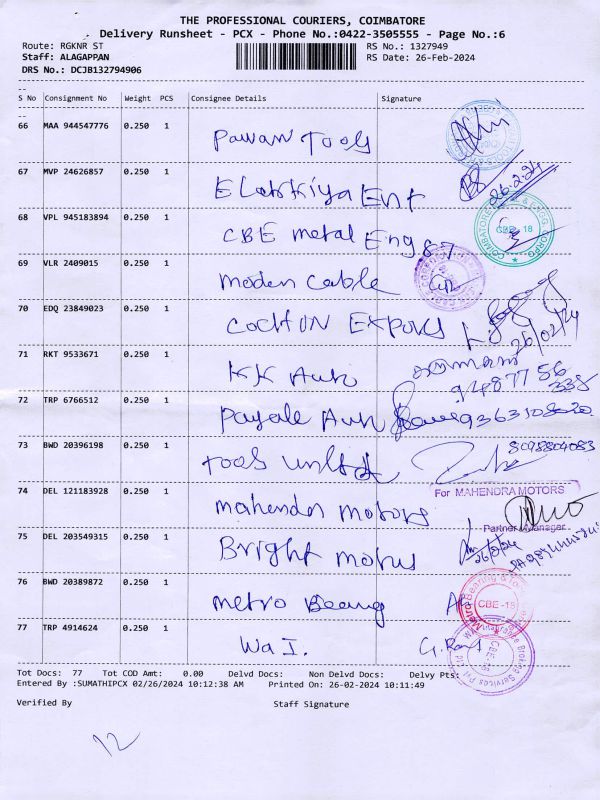 THE PROFESSIONAL COURIERS, COIMBATORE
Delivery Runsheet - PCX - Phone No.:0422-3505555 - Page No.:6
Route: RGKNR ST RS No.: 1327949
Staff: ALAGAPPAN RS Date: 26-Feb-2024
DRS No.: DCJB132794906
S No Consignment No Weight PCS Consignee Details Signature
66 MAA 944547776 0.250 1 Pawan Tools
67 MVP 24626857 0.250 1 Ent 26.2.24
68 VPL 945183894 0.250 1 CBE metal Eng CBE-18
69 VLR 2409015 0.250 1 moden cable
70 EDQ 23849023 0.250 1 26/02/24
71 RKT 9533671 0.250 1 KK Auto 9487756338
72 TRP 6766512 0.250 1 Payale Auto
73 BWD 20396198 0.250 1 8098804083
74 DEL 121183928 0.250 1 mahendra motors For MAHENDRA MOTORS
Partner / Manager
75 DEL 203549315 0.250 1 Bright motors 26/2/24
76 BWD 20389872 0.250 1 metro Bearing CBE-18
77 TRP 4914624 0.250 1 Wa I.
Tot Docs: 77 Tot COD Amt: 0.00 Delvd Docs: Non Delvd Docs: Delvy Pts:
Entered By :SUMATHIPCX 02/26/2024 10:12:38 AM Printed On: 26-02-2024 10:11:49
Verified By Staff Signature
12